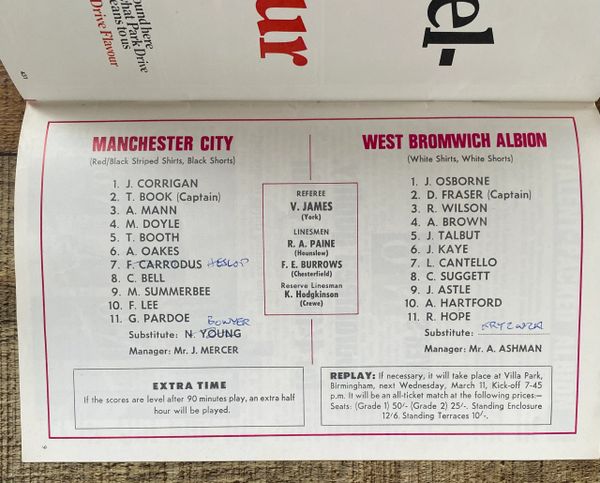 ound here
what Park Drive
eans to us
Drive Flavour
ur
el-
MANCHESTER CITY
(Red/Black Striped Shirts, Black Shorts)
1. J. CORRIGAN
2. T. BOOK (Captain)
3. A. MANN
4. M. DOYLE
5. T. BOOTH
6. A. OAKES
7. F. CARRODUS HESLOP
8. C. BELL
9. M. SUMMERBEE
10. F. LEE
11. G. PARDOE
BOWYER
Substitute: N. YOUNG
Manager: Mr. J. MERCER
REFEREE
V. JAMES
(York)
LINESMEN
R. A. PAINE
(Hounslow)
F. E. BURROWS
(Chesterfield)
Reserve Linesman
K. Hodgkinson
(Crewe)
WEST BROMWICH ALBION
(White Shirts, White Shorts)
1. J. OSBORNE
2. D. FRASER (Captain)
3. R. WILSON
4. A. BROWN
5. J. TALBUT
6. J. KAYE
7. L. CANTELLO
8. C. SUGGETT
9. J. ASTLE
10. A. HARTFORD
11. R. HOPE
Substitute:
Manager: Mr. A. ASHMAN
EXTRA TIME
If the scores are level after 90 minutes play, an extra half
hour will be played.
REPLAY: If necessary, it will take place at Villa Park,
Birmingham, next Wednesday, March 11, Kick-off 7-45
p.m. It will be an all-ticket match at the following prices:—
Seats: (Grade 1) 50/- (Grade 2) 25/-. Standing Enclosure
12/6. Standing Terraces 10/-.